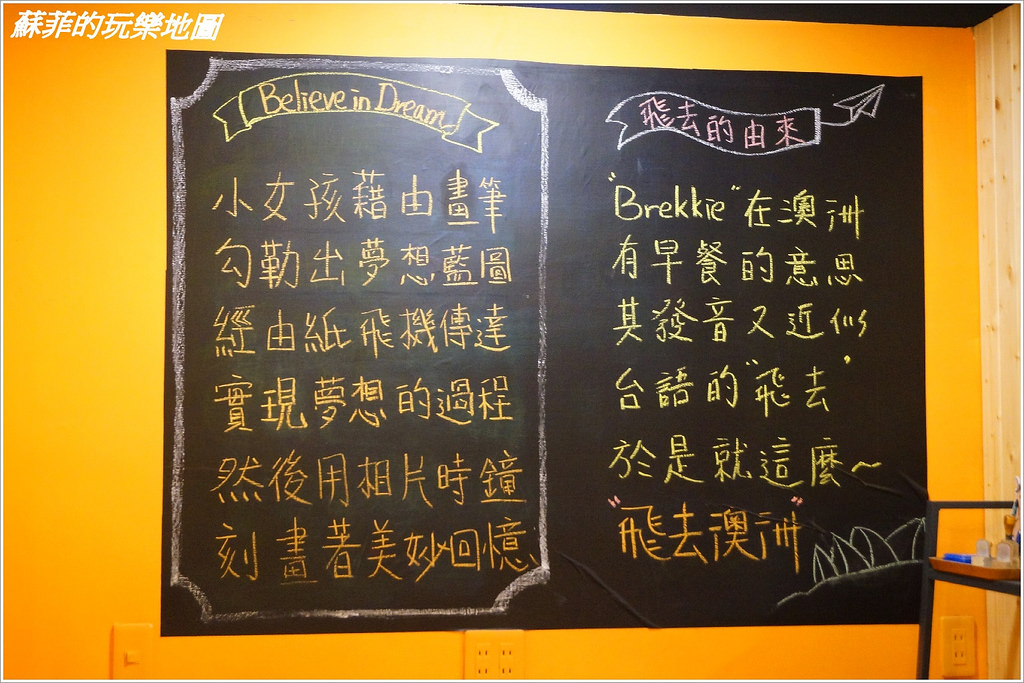 蘇菲的玩樂地圖
Believe in Dream
小女孩藉由畫筆
勾勒出夢想藍圖
經由紙飛機傳達
實現夢想的過程
然後用相片時鐘
刻畫著美妙回憶
飛去的由來
"Brekkie"在澳洲
有早餐的意思
其發音又近似
台語的"飛去"
於是就這麼~
"飛去澳洲"